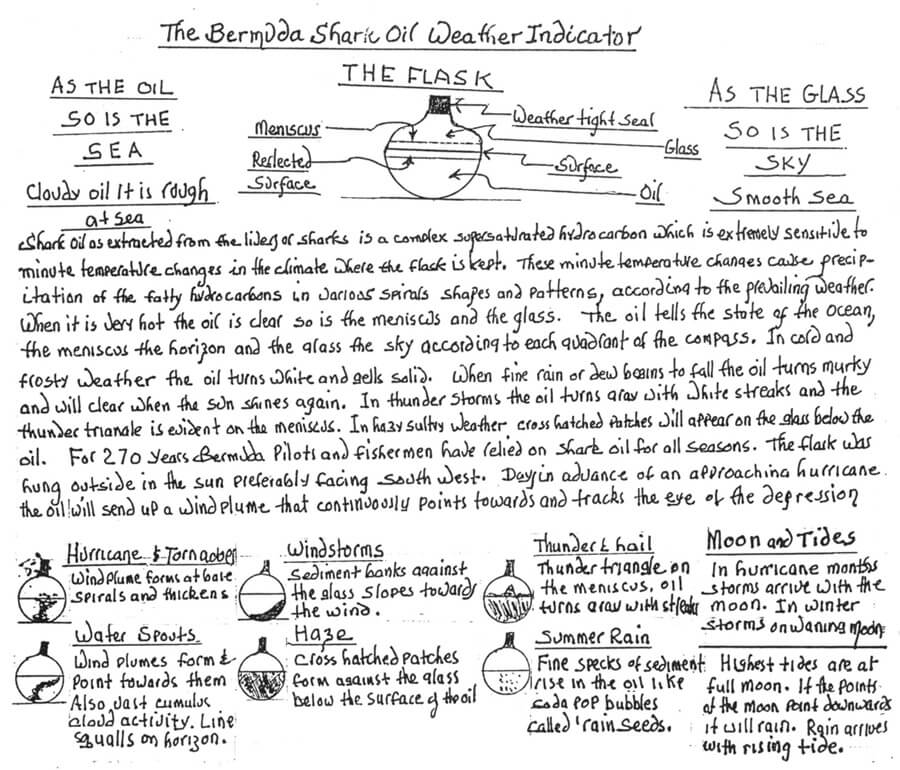 The Bermuda Shark Oil Weather Indicator
AS THE OIL
SO IS THE
SEA
Cloudy oil It is rough
at sea
THE FLASK
Meniscus
Reflected
Surface
Weather tight seal
Glass
Surface
Oil
AS THE GLASS
SO IS THE
SKY
Smooth sea
Shark Oil as extracted from the livers of sharks is a complex supersaturated hydrocarbon which is extremely sensitive to
minute temperature changes in the climate where the flask is kept. These minute temperature changes cause precip-
itation of the fatty hydrocarbons in various spirals shapes and patterns, according to the prevailing weather.
When it is very hot the oil is clear so is the meniscus and the glass. The oil tells the state of the ocean,
the meniscus the horizon and the glass the sky according to each quadrant of the compass. In cold and
frosty weather the oil turns white and gells solid. When fine rain or dew begins to fall the oil turns murky
and will clear when the sun shines again. In thunder storms the oil turns gray with white streaks and the
thunder triangle is evident on the meniscus. In hazy sultry weather cross hatched patches will appear on the glass below the
oil. For 270 years Bermuda Pilots and fishermen have relied on shark oil for all seasons. The flask was
hung outside in the sun preferably facing south west. Day in advance of an approaching hurricane
the oil will send up a wind plume that continuously points towards and tracks the eye of the depression
Hurricane & Tornadoes
Wind plume forms at base
spirals and thickens
Windstorms
Sediment banks against
the glass slopes towards
the wind.
Thunder & hail
Thunder triangle on
the meniscus, oil
turns gray with streaks
Moon and Tides
In hurricane months
storms arrive with the
moon. In winter
storms on waning moon
Water Spouts
Wind plumes form &
point towards them
Also vast cumulus
cloud activity. Line
squalls on horizon.
Haze
Cross hatched patches
form against the glass
below the surface of the oil
Summer Rain
Fine specks of sediment
rise in the oil like
soda pop bubbles
called 'rain seeds.
Highest tides are at
full moon. If the points
of the moon point downwards
it will rain. Rain arrives
with rising tide.